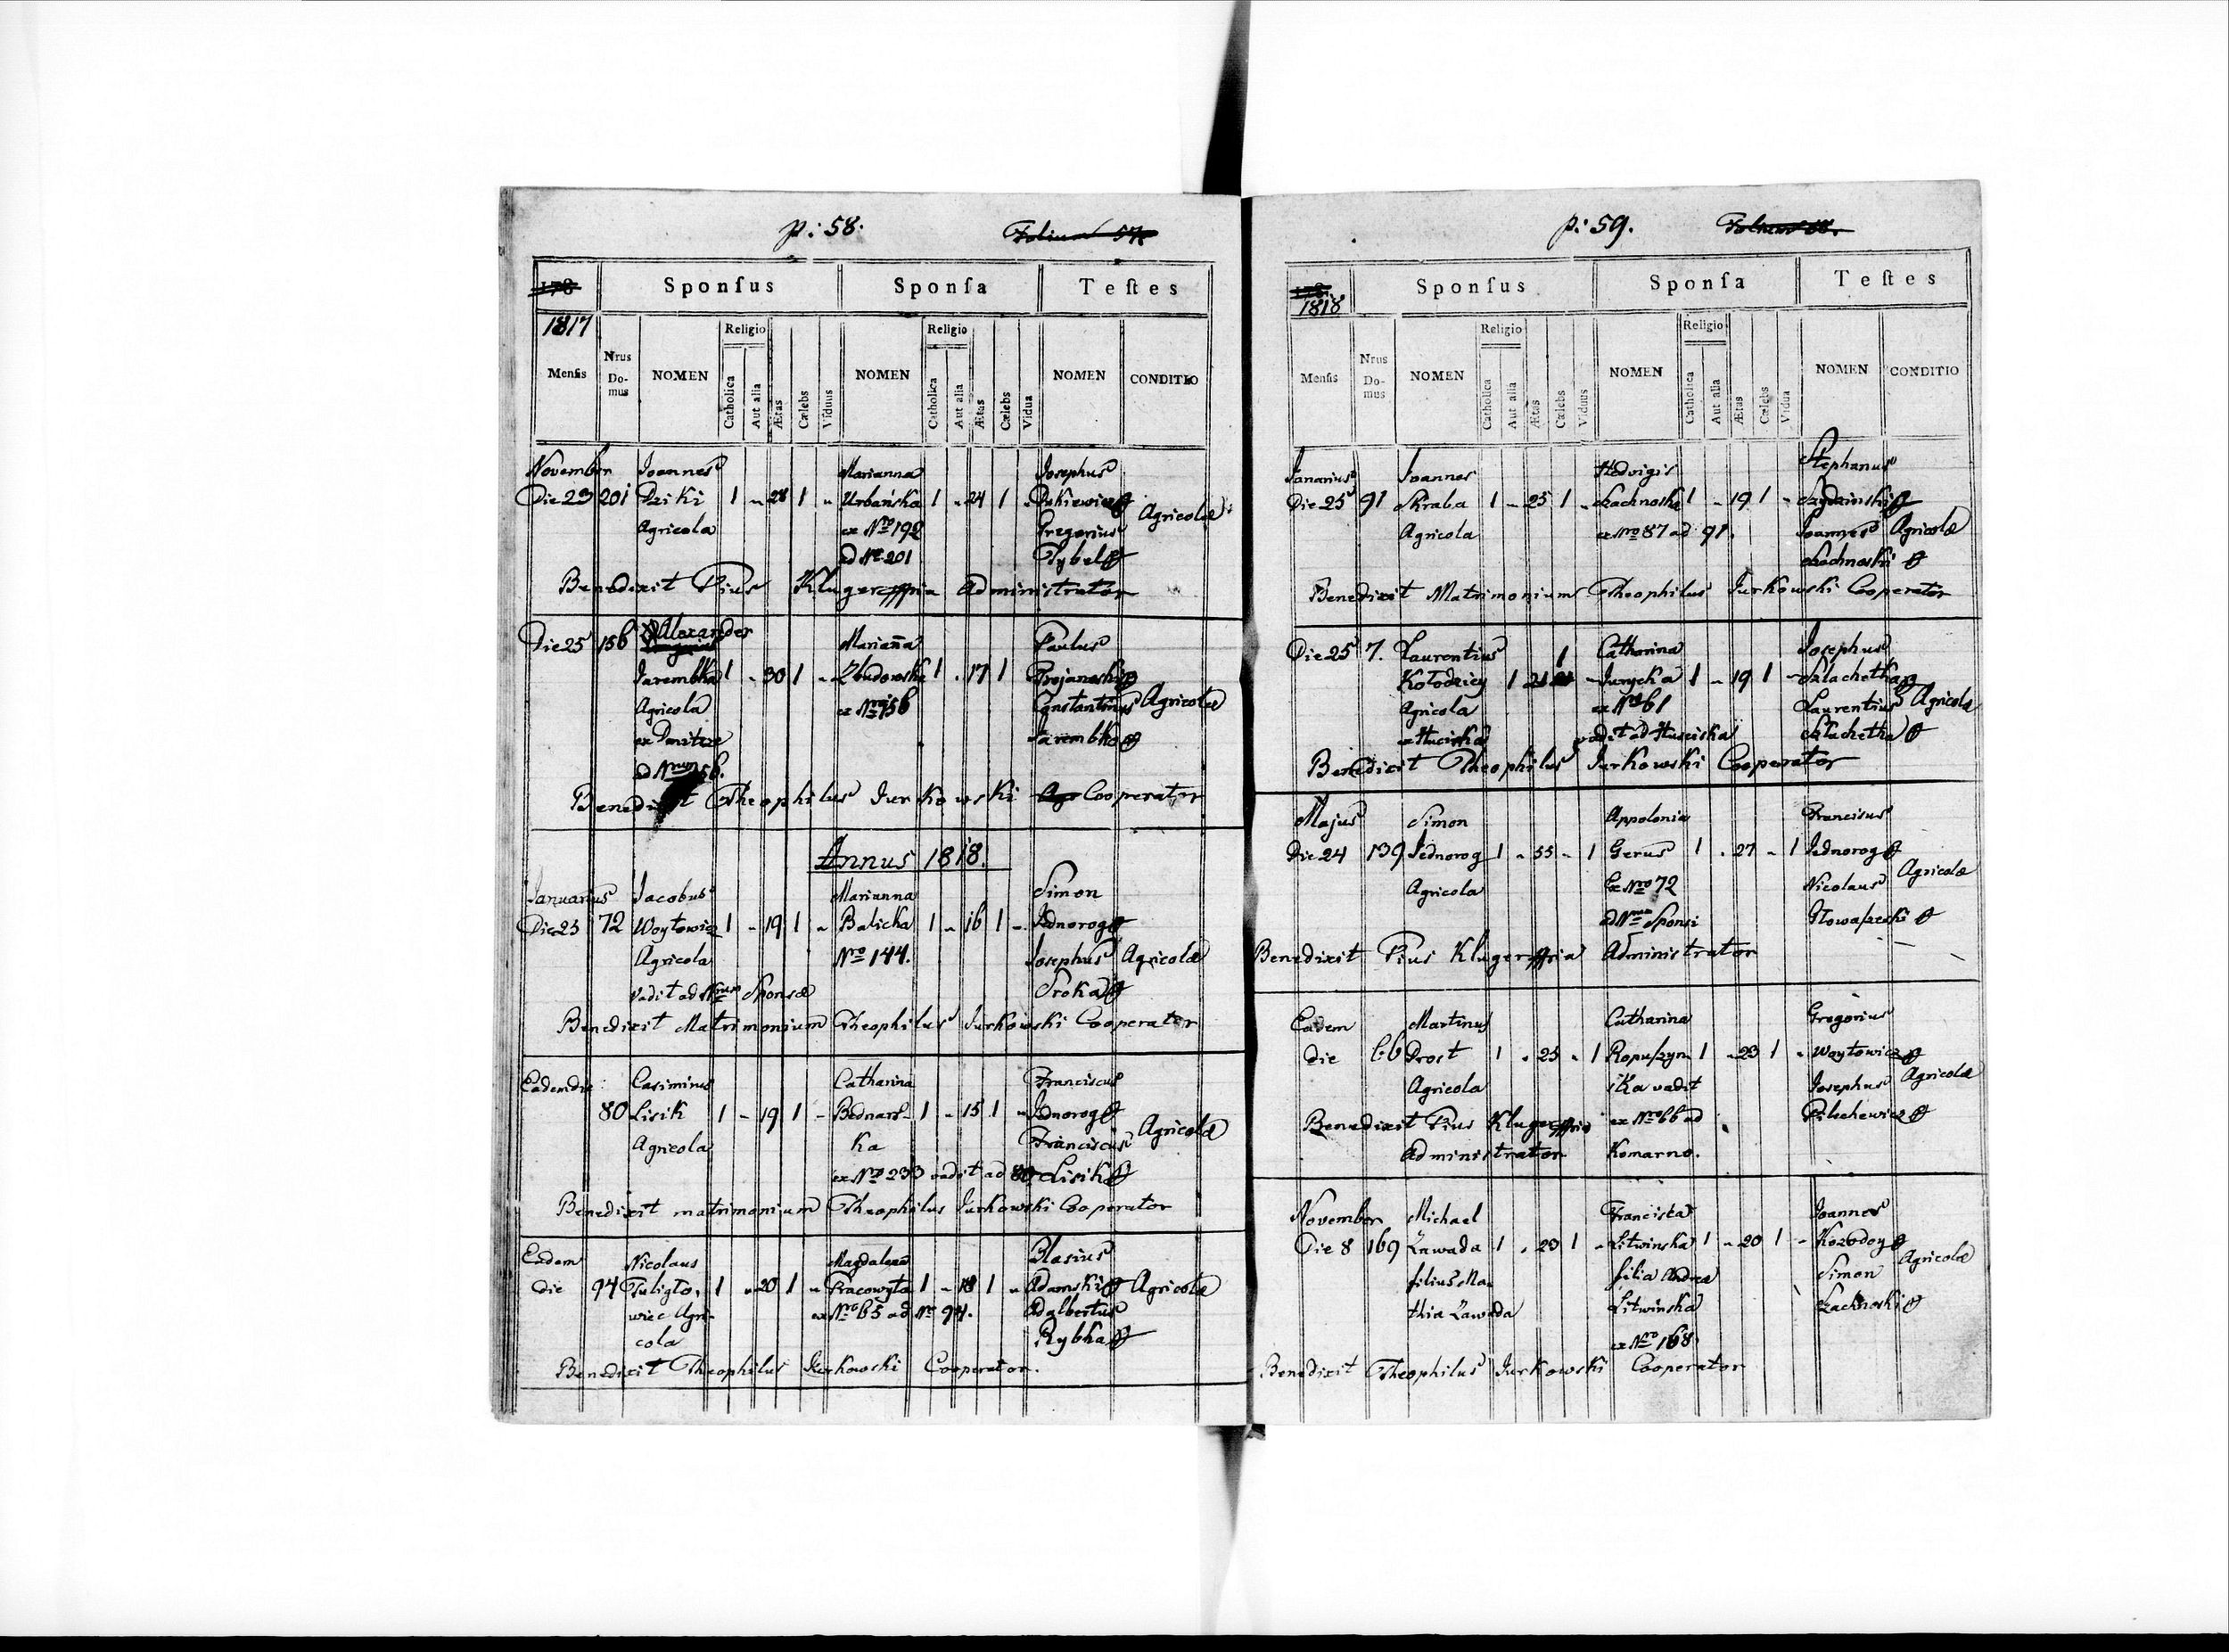 p: 58.
Folium 57
178
Sponſus
Sponſa
Teſtes
1817
Religio
Religio
Menſis
Nrus Do- mus
NOMEN
Catholica
Aut alia
Ætas
Cœlebs
Viduus
NOMEN
Catholica
Aut alia
Ætas
Cœlebs
Vidua
NOMEN
CONDITIO
November Joannes Marianna Josephus
Die 23 201 Dziki 1 - 28 1 - Urbańska 1 - 24 1 -
Agricola ex Nro 192 Gregorius Agricolæ
ad Nr 201 Tybel
Benedixit Pius Kluger Administrator
Die 25 156 Alexander Marianna Paulus
Jarembka 1 - 30 1 - Zbudowska 1 - 17 1 Trojanoski
Agricola ex Nro 156 Constantinus Agricolæ
ex Jarembka
ad Nrum 156.
Benedixit Theophilus Jurkowski Cooperator
Annus 1818.
Januarius Jacobus Marianna Simon
Die 23 72 Woytowicz 1 - 19 1 - Balicka 1 - 16 1 - Jednorog
Agricola Nro 144. Josephus Agricolæ
vadit ad Nrum Sponsæ Sroka
Benedixit Matrimonium Theophilus Jurkowski Cooperator
Eadem die Casimirus Catharina Franciscus
80 Lisik 1 - 19 1 - Bednars- 1 - 15 1 - Jednorog
Agricola ka Franciscus Agricolæ
ex Nro 233 vadit ad 80 Lisik
Benedixit matrimonium Theophilus Jurkowski Cooperator
Eadem Nicolaus Magdalena Blasius
die 94 Tuligło- 1 - 20 1 - Pracowyta 1 - 18 1 - Adamski Agricolæ
wiec Agri- ex Nro 65 ad Nr 94. Adalbertus
cola Rybka
Benedixit Theophilus Jurkowski Cooperator.
p: 59.
Folium 58.
Sponſus
Sponſa
Teſtes
1818
Religio
Religio
Menſis
Nrus Do- mus
NOMEN
Catholica
Aut alia
Ætas
Cœlebs
Viduus
NOMEN
Catholica
Aut alia
Ætas
Cœlebs
Vidua
NOMEN
CONDITIO
Januarius Joannes Hedvigis Stephanus
Die 25 91 Skraba 1 - 25 1 - 1 - 19 1 -
Agricola ex Nro 87 ad 91. Joannes Agricolæ
Benedixit Matrimonium Theophilus Jurkowski Cooperator
Die 25 7. Laurentius 1 Catharina Josephus
Kołodziey 1 21 - Jurycka 1 - 19 1 - Szlachetka
Agricola ex Nro 61 Laurentius Agricolæ
ex Hucisko vadit ad Hucisko Szlachetka
Benedixit Theophilus Jurkowski Cooperator
Majus Simon Appolonia Franciscus
Die 24 139 Jednorog 1 - 55 - 1 Gerus 1 - 27 - 1 Jednorog
Agricola Ex Nro 72 Nicolaus Agricolæ
ad Nrum Sponsi
Benedixit Pius Kluger Administrator
Eadem Martinus Catharina Gregorius
die 66 Drost 1 - 25 - 1 Ropuszyn- 1 - 23 1 - Woytowicz
Agricola ska vadit Josephus Agricolæ
Benedixit Pius Kluger ex Nro 66 ad
Administrator Komarno.
November Michael Francisca Joannes
Die 8 169 Zawada 1 - 23 1 - Litwinska 1 - 20 1 - Kozodoy
filius Ma- filia Andreæ Simon Agricolæ
thiæ Zawada Litwinska
ex Nro 168
Benedixit Theophilus Jurkowski Cooperator